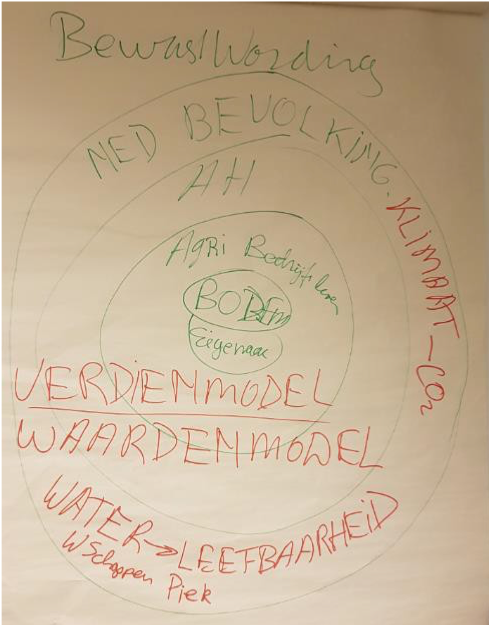 Bewustwording
NED BEVOLKING.
KLIMAAT-CO2
AH
Agri Bedrijfsleven
BODEM
Eigenaar
VERDIENMODEL
WAARDENMODEL
WATER → LEEFBAARHEID
WSchappen Piek